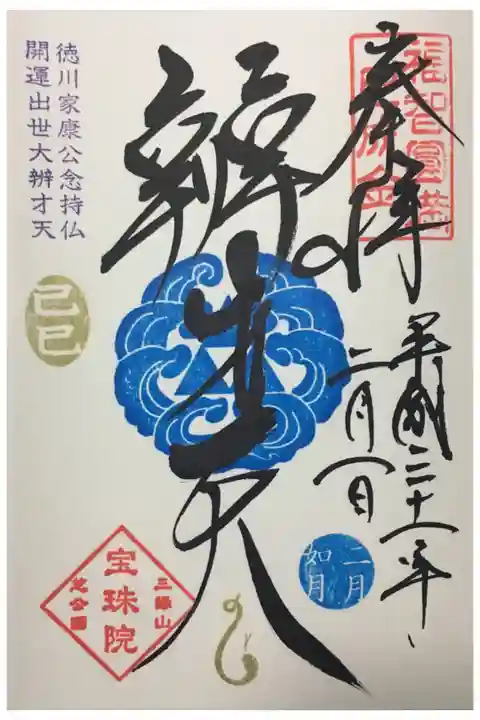 奉拝
平成三十一年
二月一日
辨才天
徳川家康公念持仏
開運出世大辨才天
己巳
二月
如月
三縁山
宝珠院
芝公園